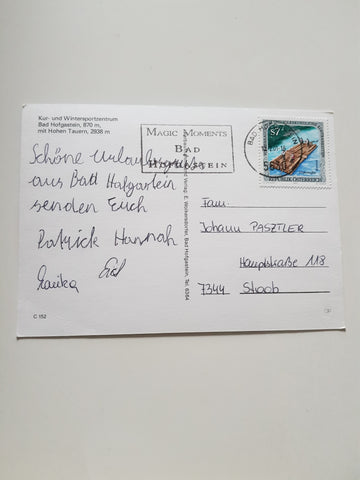 Kur- und Wintersportzentrum
Bad Hofgastein, 870 m,
mit Hohen Tauern, 2938 m
MAGIC MOMENTS
BAD
HOFGASTEIN
BAD
5630
S7
REPUBLIK ÖSTERREICH
Schöne Urlaubsgrüße
aus Bad Hofgastein
senden Euch
Patrick Hannah
Fam.
Johann PASZTLER
Hauptstraße 118
7344 Stoob
Verlag E. Wührersbad, Bad Hofgastein, Tel. 6264
C 152